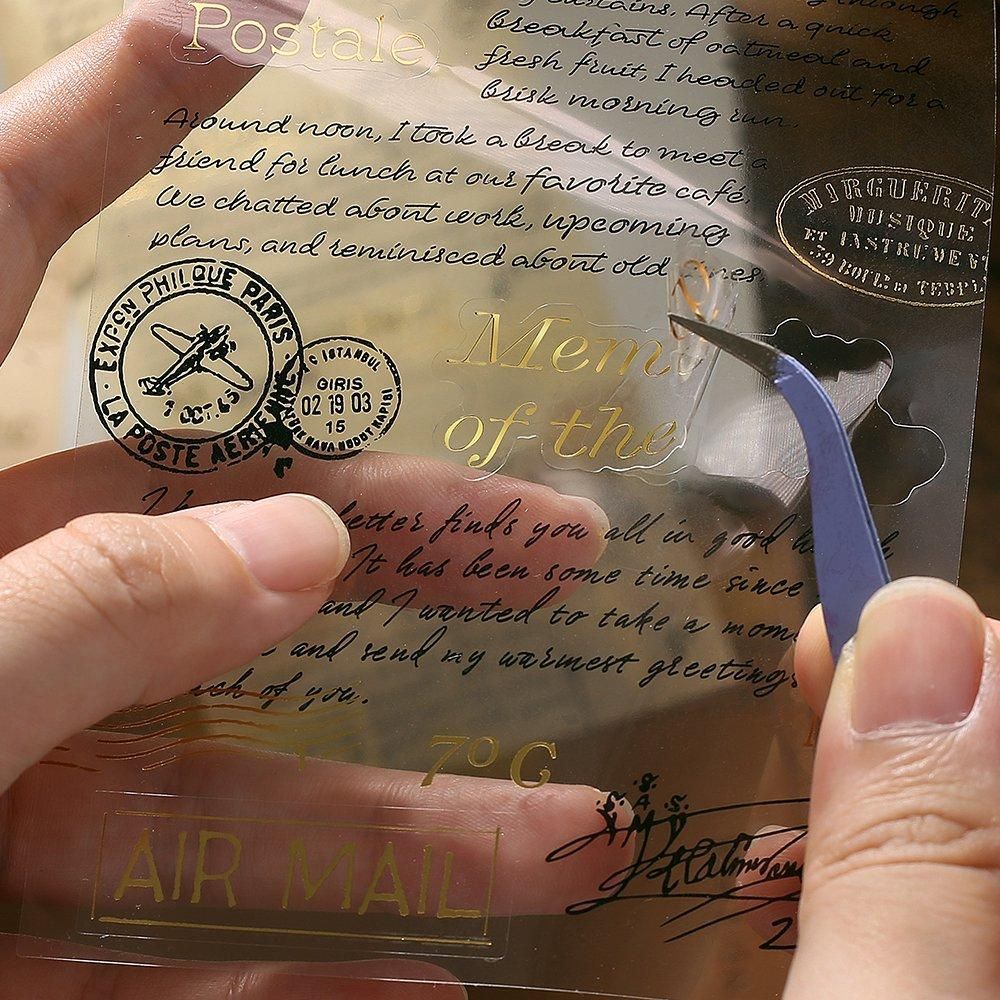 Postale
through
curtains. After a quick
breakfast of oatmeal and
fresh fruit, I headed out for a
brisk morning run.
Around noon, I took a break to meet a
friend for lunch at our favorite café.
We chatted about work, upcoming
plans, and reminisced about old
MIRGUERIT
MUSIQUE
ET INSTRUMEN
EXPON PHILQUE PARIS
7 OCT.43
LA POSTE AERIENNE
ISTANBUL
GIRIS
02 19 03
15
Mem
of the
letter finds you all in good
It has been some time since
and I wanted to take a mom
and send my warmest greetings
of you.
7º C
AIR MAIL
2